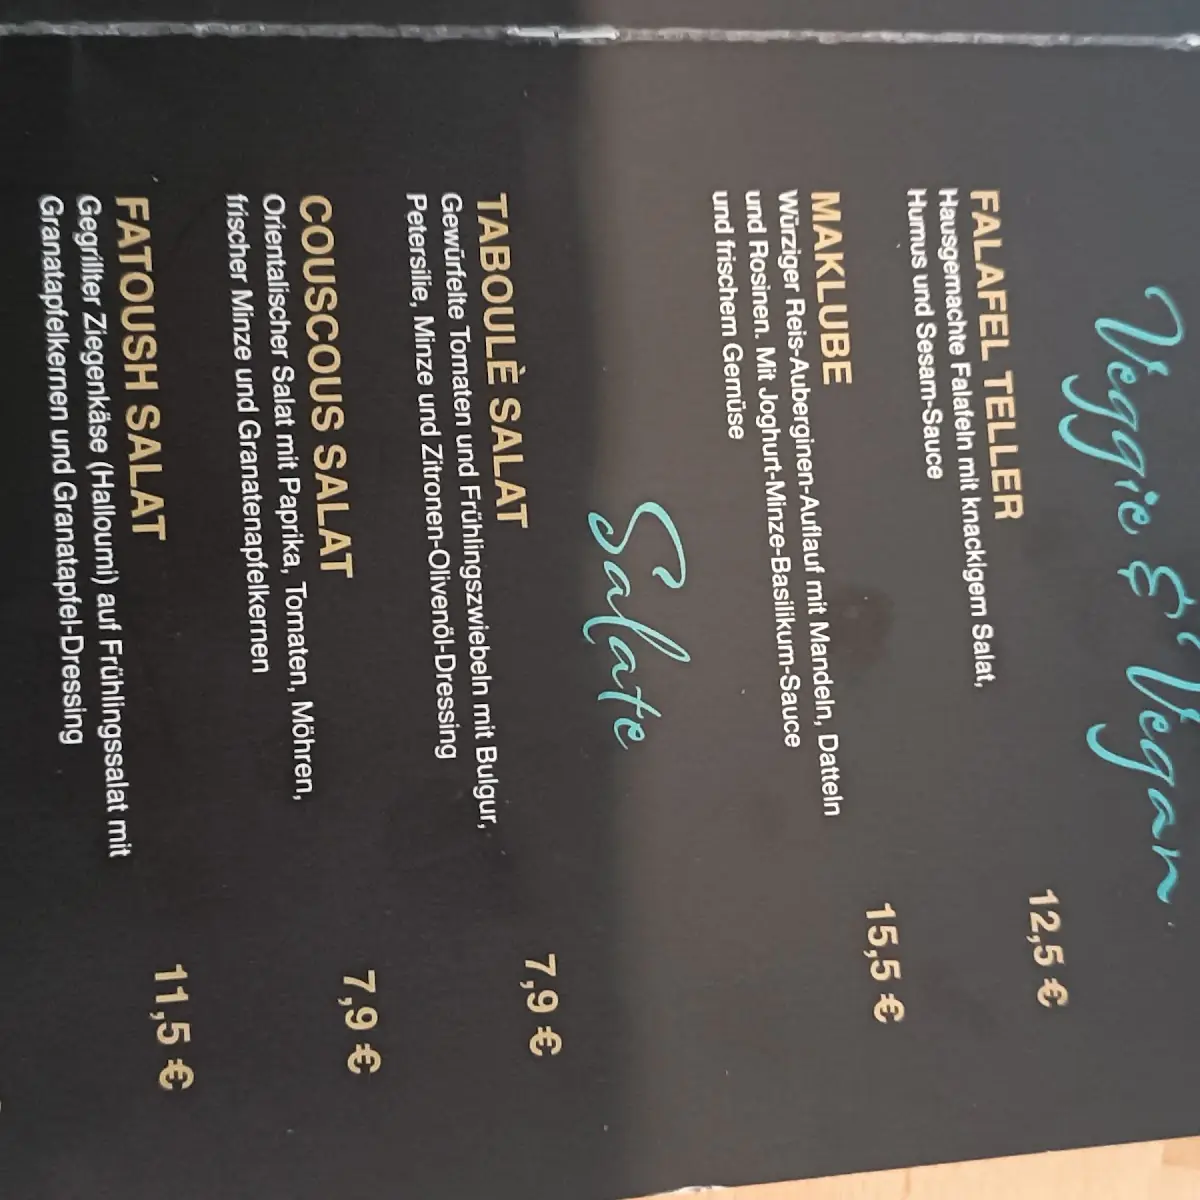 Veggie & Vegan
FALAFEL TELLER 12,5 €
Hausgemachte Falafeln mit knackigem Salat,
Humus und Sesam-Sauce
MAKLUBE 15,5 €
Würziger Reis-Auberginen-Auflauf mit Mandeln, Datteln
und Rosinen. Mit Joghurt-Minze-Basilikum-Sauce
und frischem Gemüse
Salate
TABOULÈ SALAT 7,9 €
Gewürfelte Tomaten und Frühlingszwiebeln mit Bulgur,
Petersilie, Minze und Zitronen-Olivenöl-Dressing
COUSCOUS SALAT 7,9 €
Orientalischer Salat mit Paprika, Tomaten, Möhren,
frischer Minze und Granatenapfelkernen
FATOUSH SALAT 11,5 €
Gegrillter Ziegenkäse (Halloumi) auf Frühlingssalat mit
Granatapfelkernen und Granatapfel-Dressing